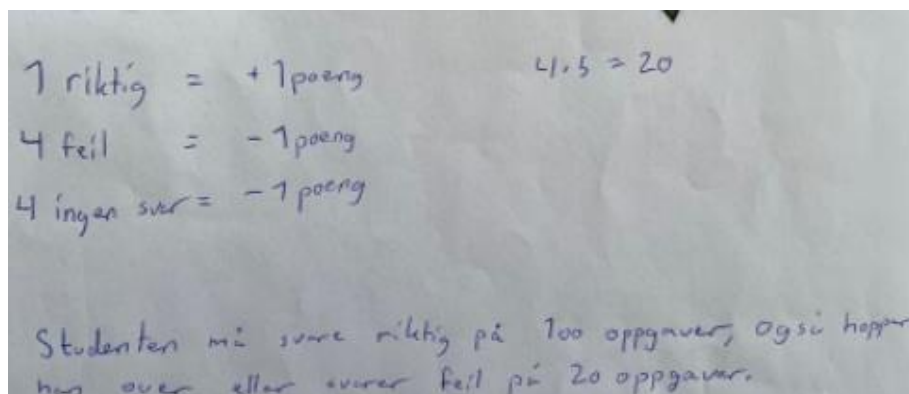 1 riktig = + 1 poeng
4 · 5 = 20
4 feil = - 1 poeng
4 ingen svar = - 1 poeng
Studenten må svare riktig på 100 oppgaver, også hopper
han over eller svarer feil på 20 oppgaver.